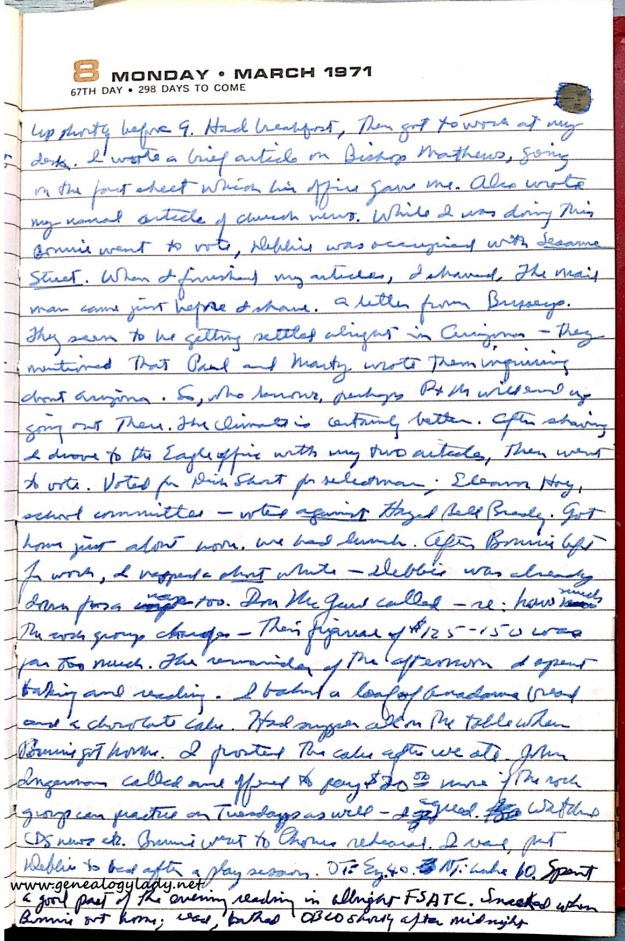 8 MONDAY • MARCH 1971
67TH DAY • 298 DAYS TO COME
Up shortly before 9. Had breakfast, then got to work at my
desk. I wrote a brief article on Bishop Mathews, going
on the fact sheet which his office gave me. Also wrote
my usual article of church news. While I was doing this
Bonnie went to vote, Debbie was occupied with Sesame
Street. When I finished my articles, I shaved. The mail
man came just before I shave. A letter from Busseys.
They seem to be getting settled alright in Arizona - they
mentioned that Paul and Marty wrote them inquiring
about Arizona. So, who knows, perhaps P & M will end up
going out there. The climate is certainly better. After shaving
I drove to the Eagle office with my two articles, then went
to vote. Voted for Dick Short for selectman; Eleanor Hoy,
school committee - voted against Hazel Bell Brady. Got
home just about noon. We had lunch. After Bonnie left
for work, I napped a short while - Debbie was already
down for a nap too. Don called - re: how much
the rock group charges - their figure of $125-150 was
far too much. The remainder of the afternoon I spent
baking and reading. I baked a loaf of anadama bread
and a chocolate cake. Had supper all on the table when
Bonnie got home. I frosted the cake after we ate. John
Ingerman called and offered to pay $20.00 more if the rock
group can practice on Tuesdays as well - I agreed. Watched
CBS news etc. Bonnie went to Chorus rehearsal. I read, put
Debbie to bed after a play session. OT: 40. NT: Luke 10. Spent
www.genealogylady.net
a good part of the evening reading in allnight FSATC. Snacked when
Bonnie got home; read, bathed shortly after midnight